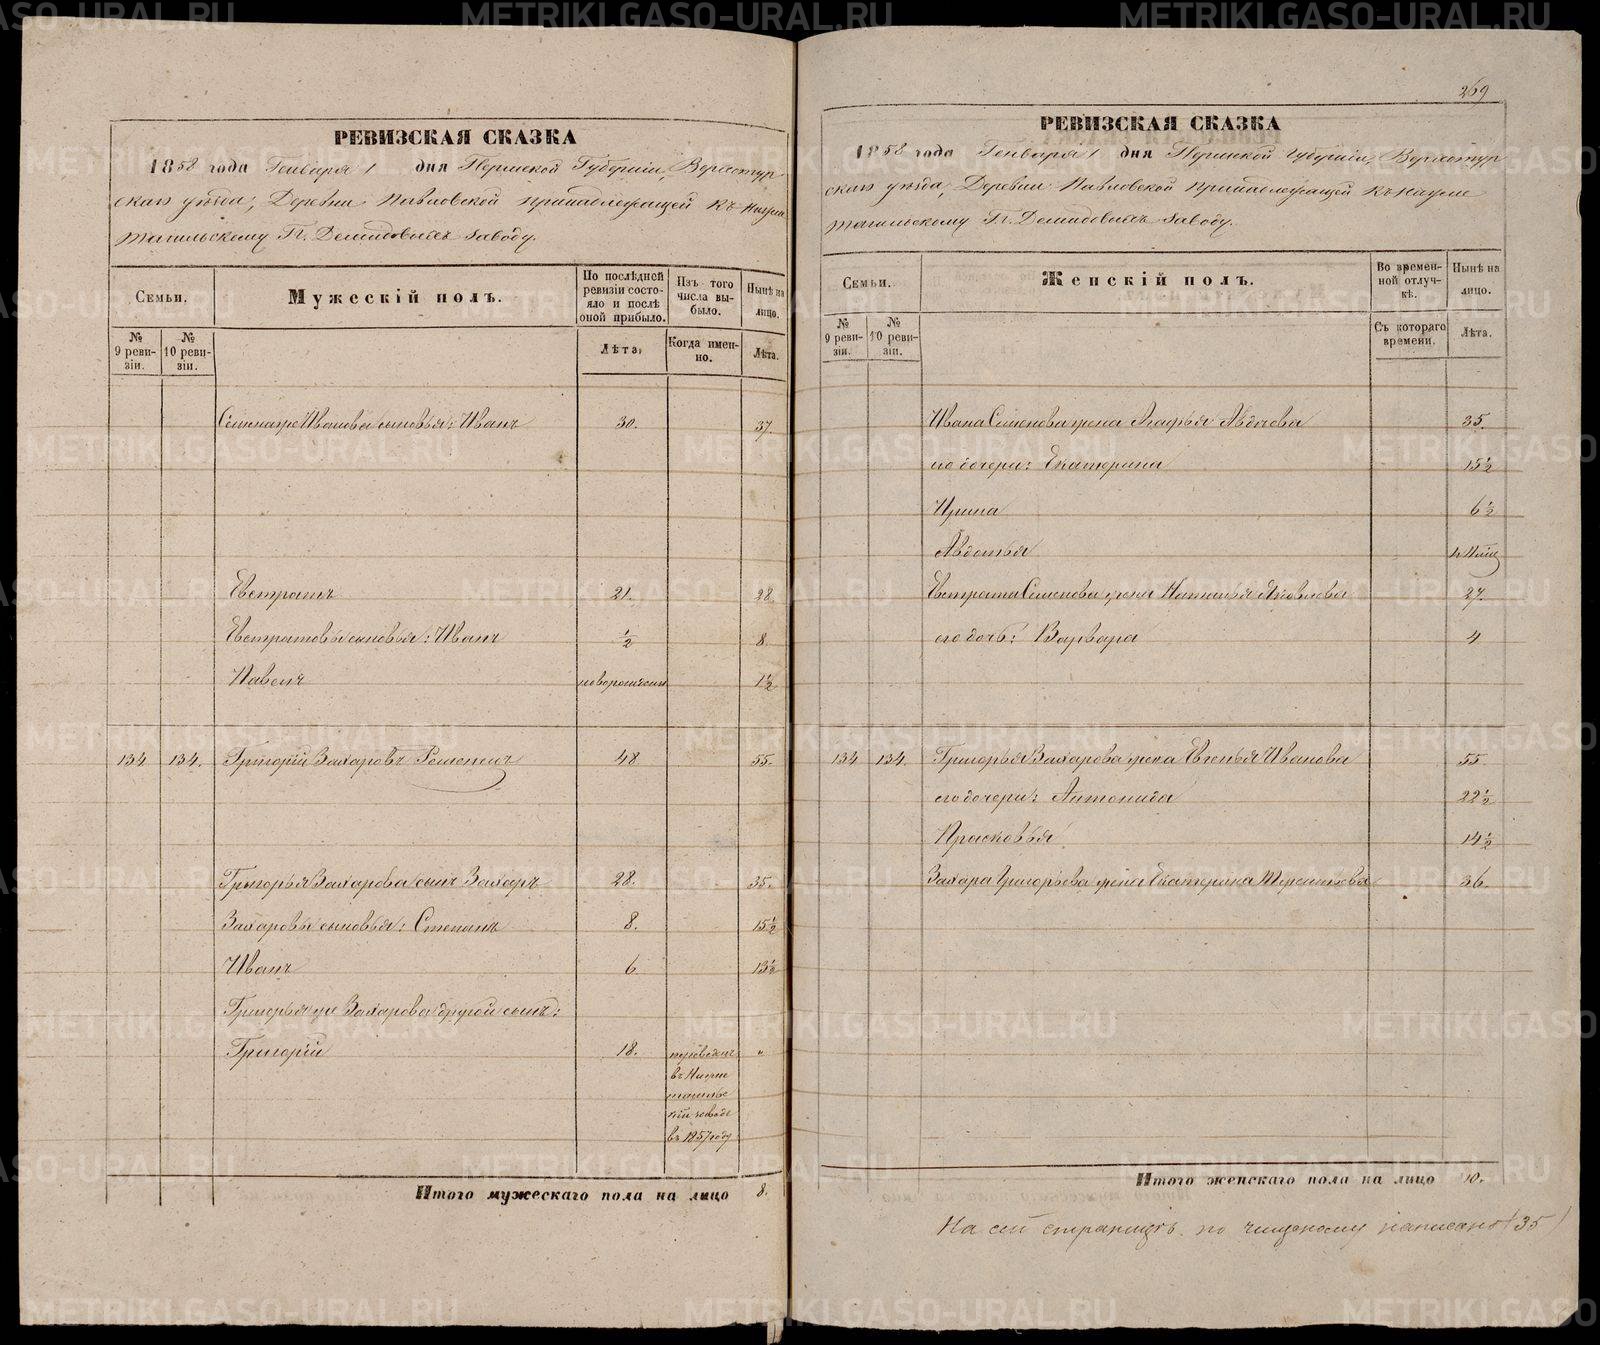 РЕВИЗСКАЯ СКАЗКА
1858 года Генваря 1 дня Пермской Губернiи, Верхотур
скаго уѣзда, Деревни Павловской принадлежащей къ Нижне
тагильскому Гг. Демидовыхъ заводу.
Семьи.
№ 9 реви-зiи.
№ 10 реви-зiи.
Мужескiй полъ.
По послѣдней ревизiи состо-яло и послѣ оной прибыло.
Изъ того числа вы-было.
Нынѣ на лицо.
Лѣта.
Когда имен-но.
Лѣта.
Ивановы сыновья: Иванъ 30. 37.
Евстратъ 21. 28
Евстратовы сыновья: Иванъ ½ 8.
Павелъ новорожденъ 1½
134 134. Григорiй Захаровъ 48 55.
Григорья Захарова сынъ Захаръ 28. 35.
Захаровы сыновья: Степанъ 8. 15½
Иванъ 6 13½
Григорья же Захарова другой сынъ:
Григорiй 18. переведенъ "
въ Нижне
тагильс
кiй заводъ
въ 1857 году
Итого мужескаго пола на лицо 8.
269
РЕВИЗСКАЯ СКАЗКА
1858 года Генваря 1 дня Пермской Губернiи, Верхотур
скаго уѣзда, Деревни Павловской принадлежащей къ Нижне
тагильскому Гг. Демидовыхъ заводу.
Семьи.
№ 9 реви-зiи.
№ 10 реви-зiи.
Женскiй полъ.
Во времен-ной отлуч-кѣ.
Нынѣ на лицо.
Съ котораго времени.
Лѣта.
Ивана Семенова жена Агафья 35.
его дочери: Екатерина 15½
Ирина 6½
Авдотья
Евстрата Семенова жена Наталья Яковлева 27.
его дочь: Варвара 4
134 134. Григорья Захарова жена Евгенья Иванова 55.
его дочери: Антонида 22½
Прасковья 14½
Захара Григорьева жена Екатерина Терентьева 36.
Итого женскаго пола на лицо 10.
На сей страницѣ по написано (35)
METRIKI.GASO-URAL.RU